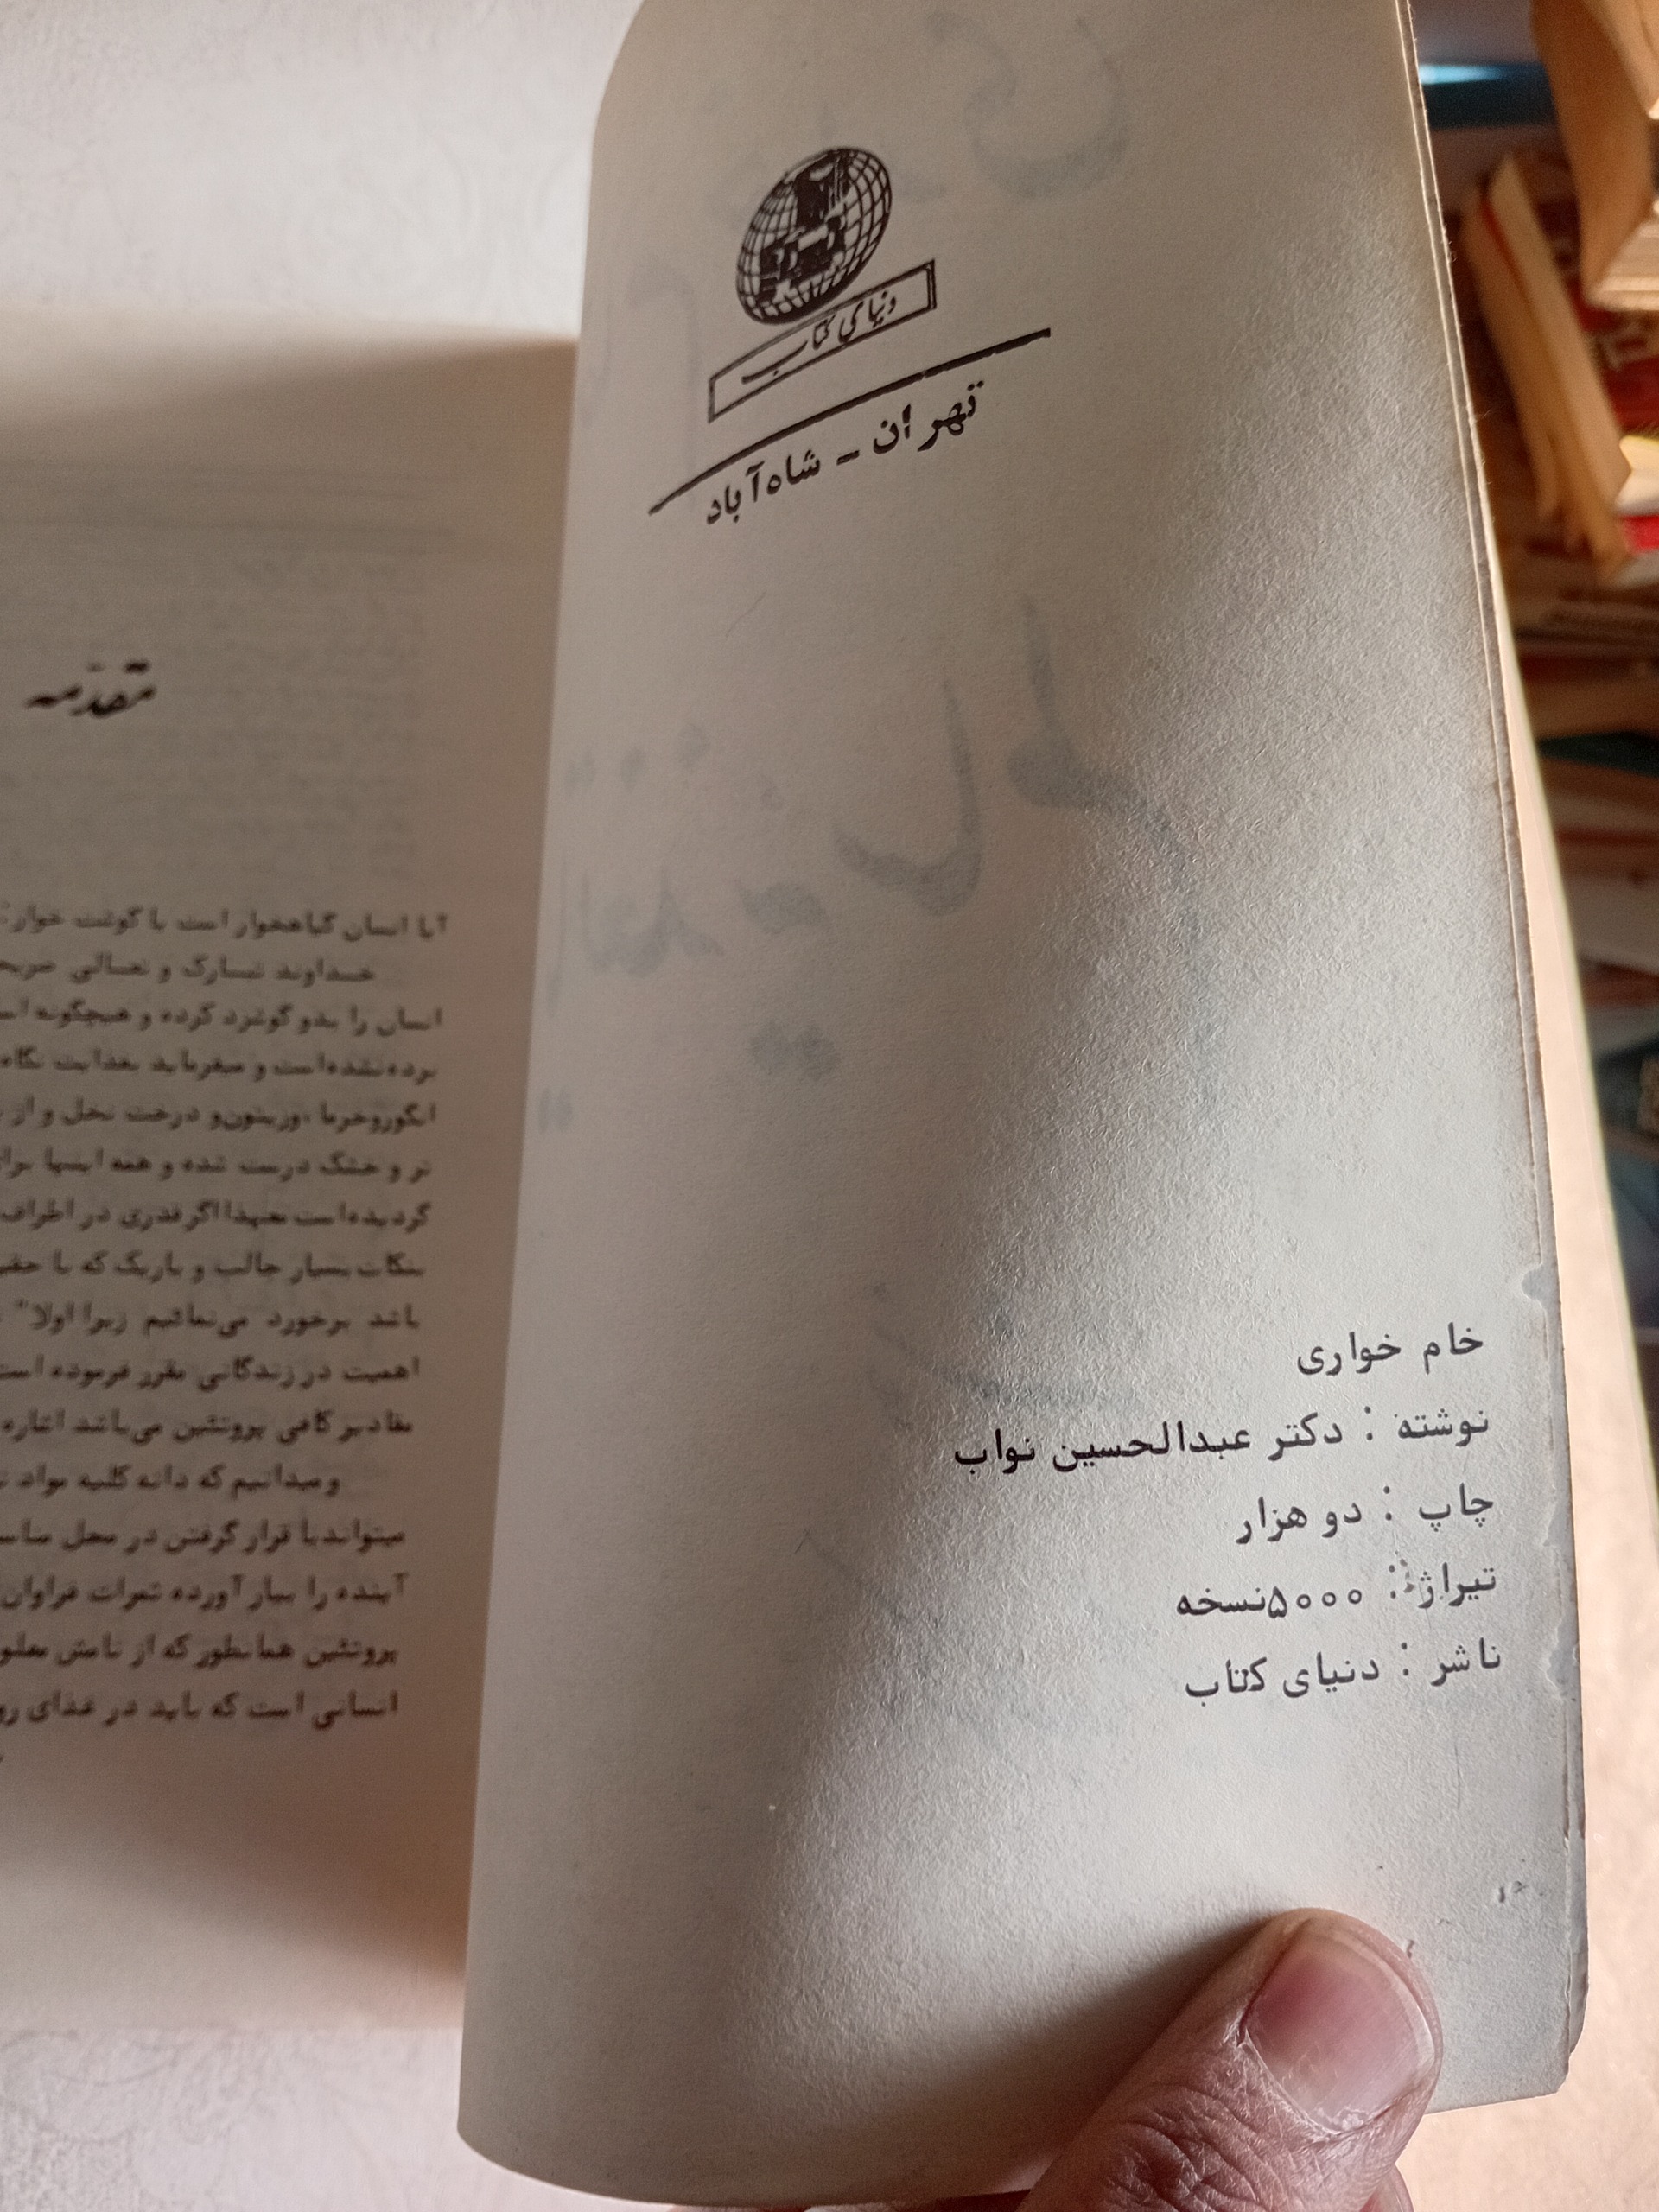 دنیای کتاب
تهران - شاه‌آباد
خام خواری
نوشته : دکتر عبدالحسین نواب
چاپ : دو هزار
تیراژ : ۵۰۰۰نسخه
ناشر : دنیای کتاب
مقدمه
آیا انسان گیاهخوار است یا گوشت خوار:
خداوند تبارک و تعالی
انسان را بدو گوشزد کرده و هیچگونه
برده‌نشده‌است و میفرماید بغذایت نگاه
انگوروخرما ،وزیتون‌و درخت نخل و از
تر و خشک درست شده و همه اینها
گردیده‌است معهذا اگر قدری در اطراف
بنکات بسیار جالب و باریک که با
باشد برخورد می‌نمائیم زیرا اولا"
اهمیت در زندگانی مقرر فرموده است
مقادیر کافی پروتئین می‌باشد اشاره
ومیدانیم که دانه کلیه مواد
میتواندبا قرار گرفتن در محل
آینده را ببار آورده ثمرات فراوان
پروتئین همانطور که از نامش
انسانی است که باید در غذای